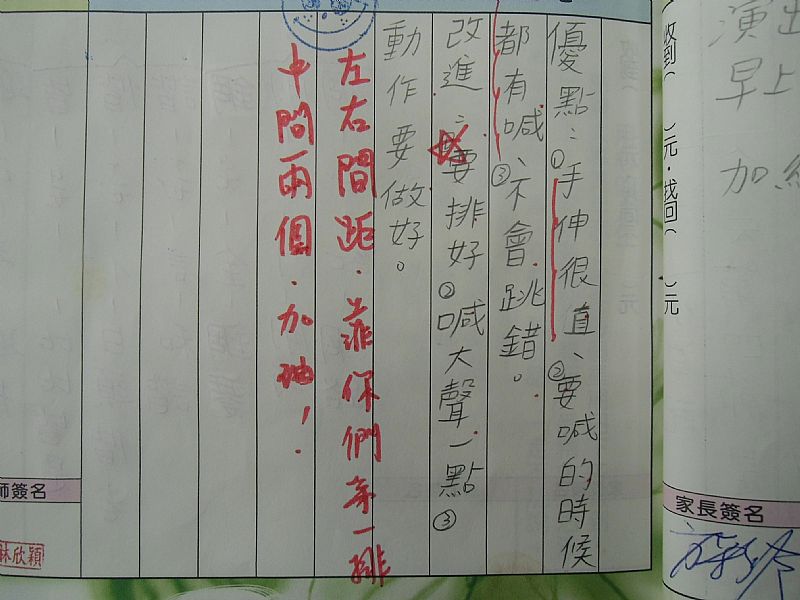 演出
早上
加
收到( )元.找回( )元
家長簽名
優點：①手伸很直、②要喊的時候
都有喊、③不會跳錯。
改進：要排好②喊大聲一點③
動作要做好。
左右間距.靠你們第一排
中間兩個.加油！
師簽名
林欣穎